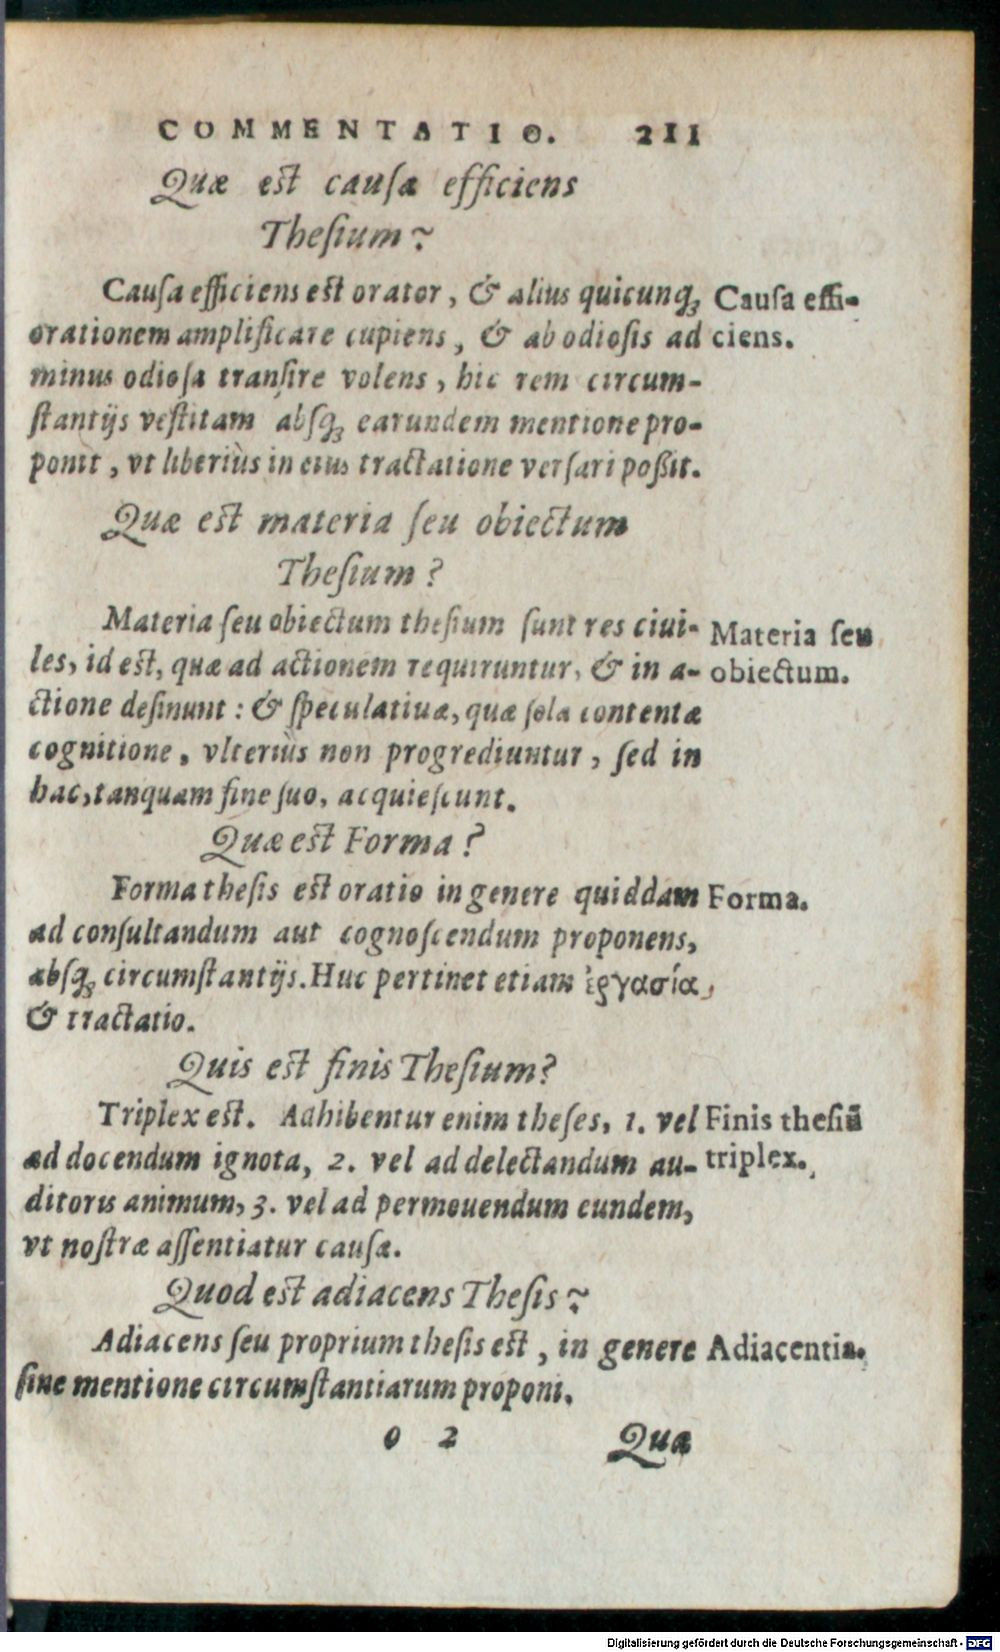 COMMENTATIO. 211
Quæ est causa efficiens
Thesium?
Causa efficiens est orator, & alius quicunq; Causa effi-
orationem amplificare cupiens, & ab odiosis ad ciens.
minus odiosa transire volens, hic rem circum-
stantijs vestitam absq; earundem mentione pro-
ponit, vt liberiùs in eius tractatione versari poßit.
Quæ est materia seu obiectum
Thesium?
Materia seu obiectum thesium sunt res ciui- Materia seu
les, id est, quæ ad actionem requiruntur, & in a- obiectum.
ctione desinunt: & speculatiuæ, quæ sola contentæ
cognitione, vlteriùs non progrediuntur, sed in
hac, tanquam fine suo, acquiescunt.
Quæ est Forma?
Forma thesis est oratio in genere quiddam Forma.
ad consultandum aut cognoscendum proponens,
absq; circumstantijs. Huc pertinet etiam ἐργασία,
& tractatio.
Quis est finis Thesium?
Triplex est. Adhibentur enim theses, 1. vel Finis thesiũ
ad docendum ignota, 2. vel ad delectandum au- triplex.
ditoris animum, 3. vel ad permouendum eundem,
vt nostræ assentiatur causæ.
Quod est adiacens Thesis?
Adiacens seu proprium thesis est, in genere Adiacentia.
sine mentione circumstantiarum proponi.
o 2 Quæ
Digitalisierung gefördert durch die Deutsche Forschungsgemeinschaft - DFG